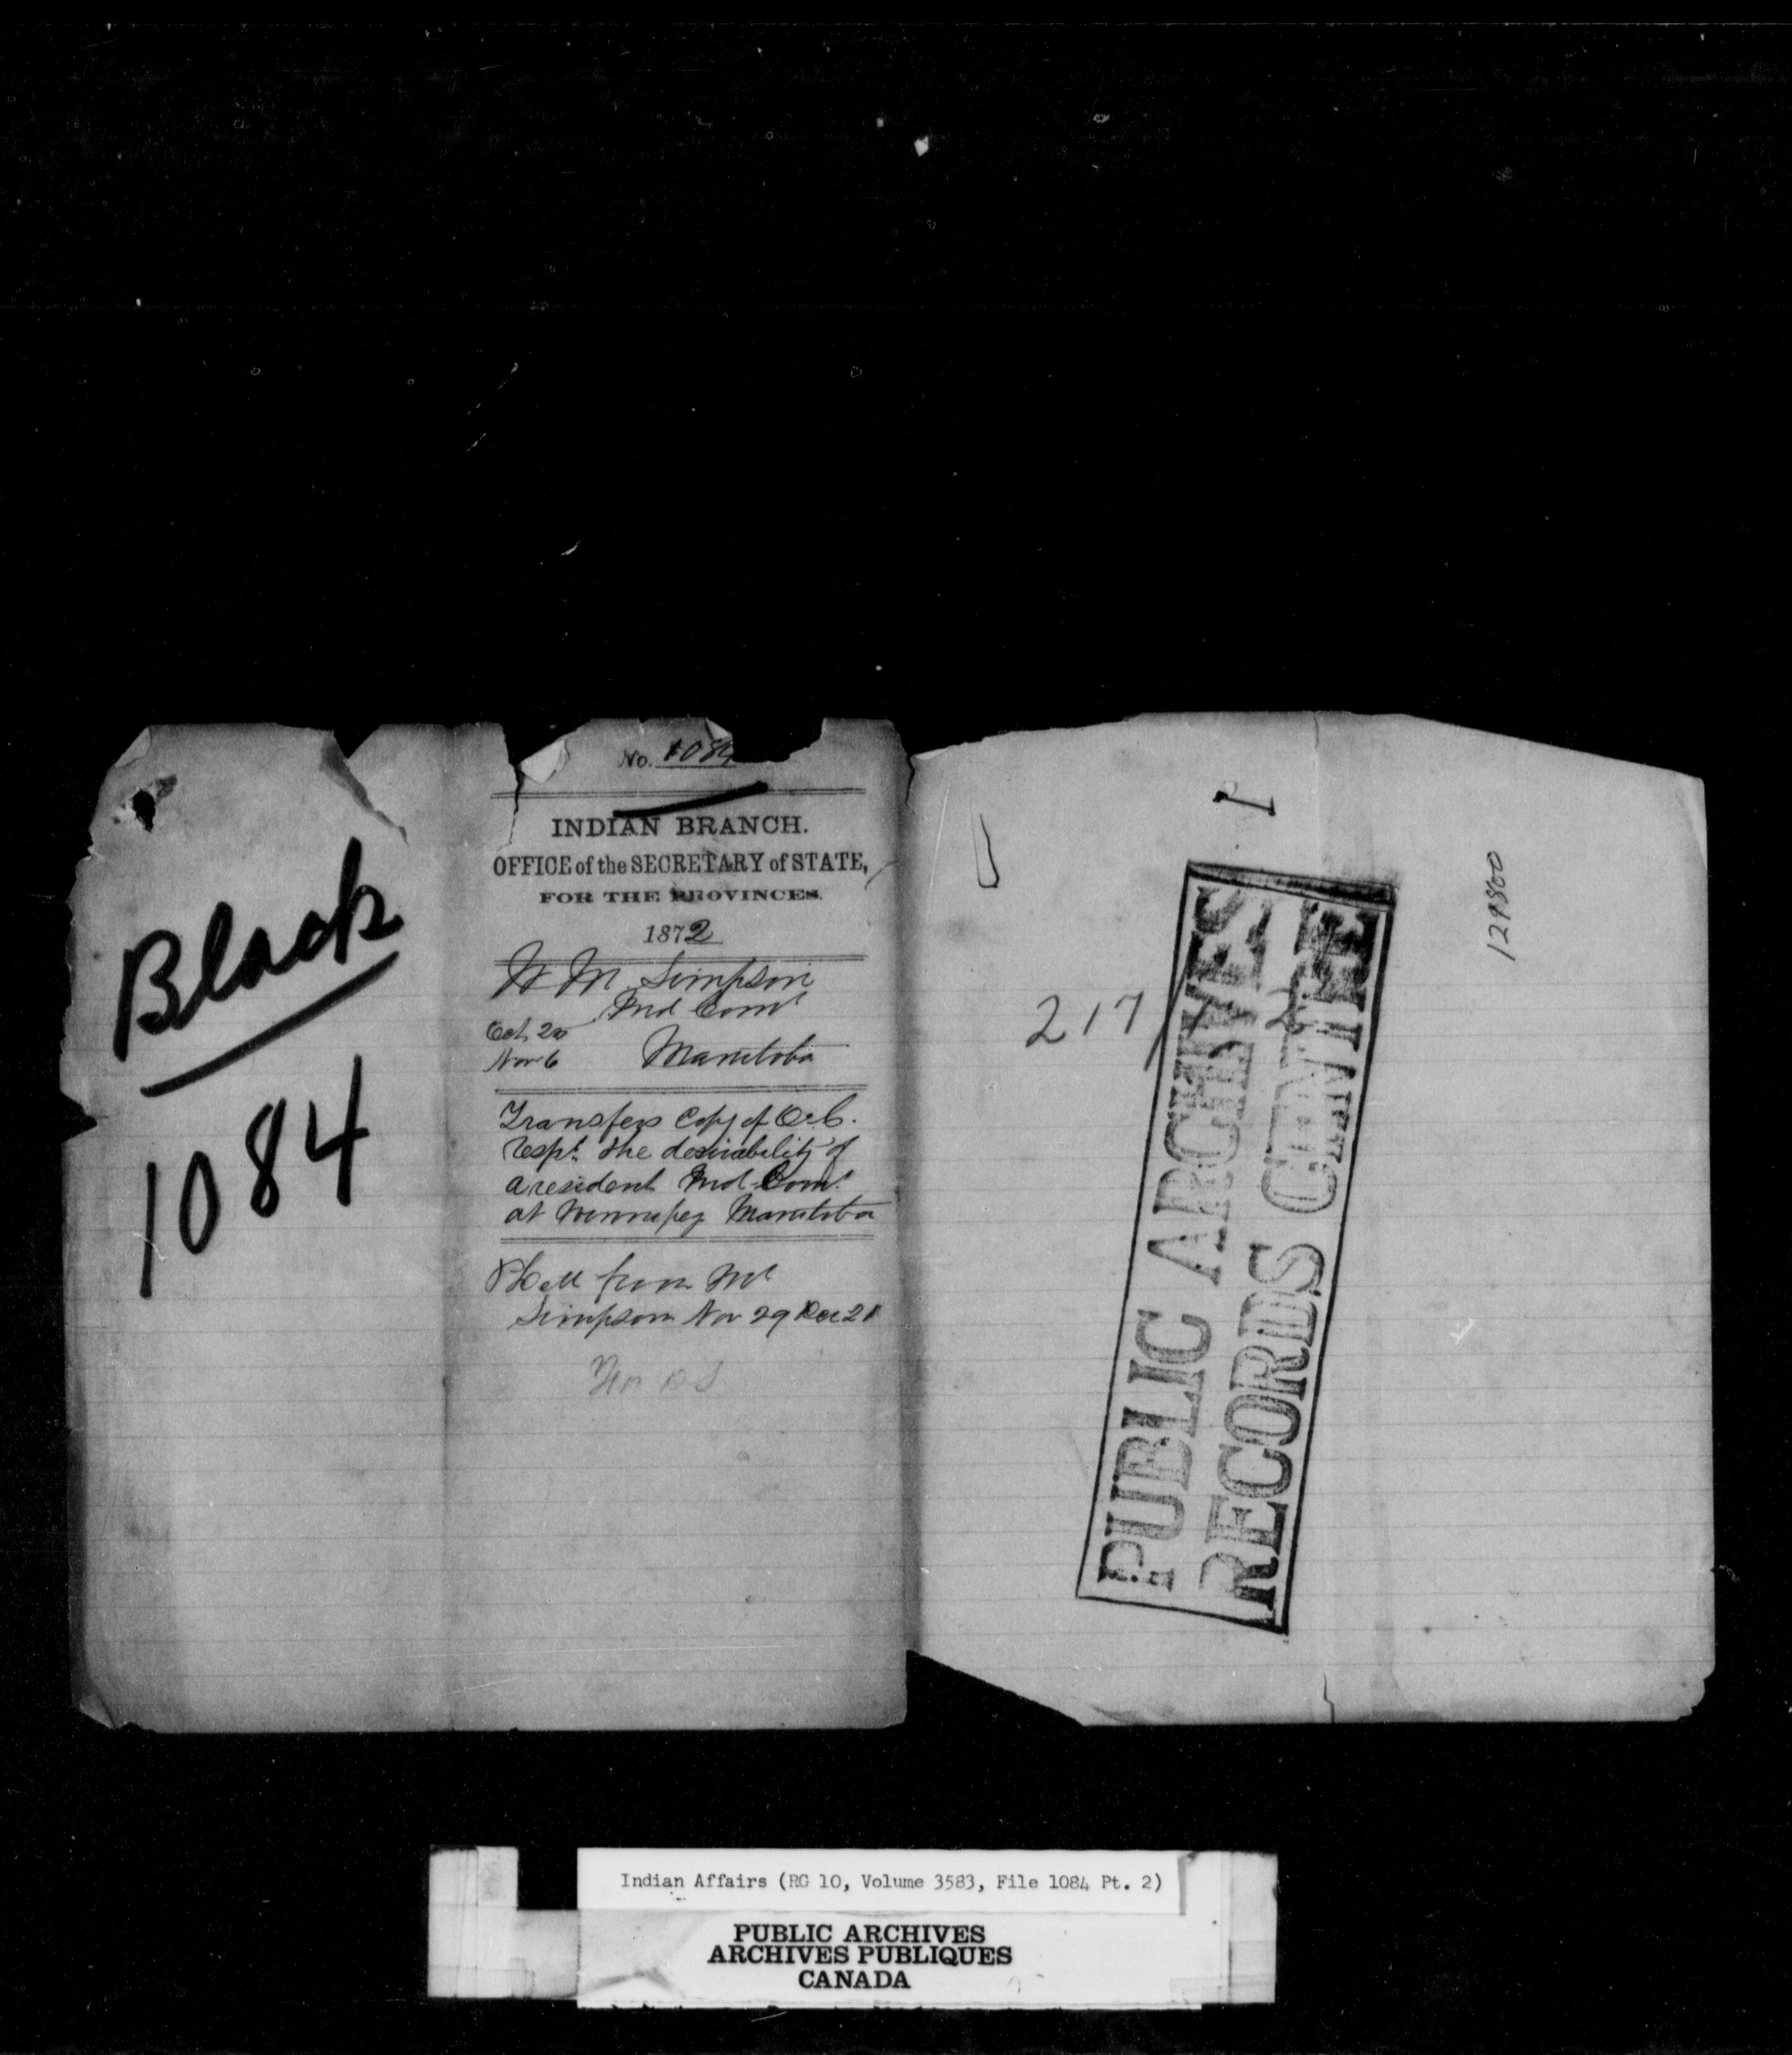 Black
1084
No. 1084
INDIAN BRANCH.
OFFICE of the SECRETARY of STATE,
FOR THE PROVINCES.
1872
W M. Simpson
Ind Comr
Oct 20
Nov 6 Manitoba
Transfers Copy of O.C.
respt. the desirability of
a resident Ind Comr
at Winnipeg Manitoba
from Mr
Simpson Nov 29 Dec 21
I
217
129800
PUBLIC ARCHIVES
RECORDS CENTRE
Indian Affairs (RG 10, Volume 3583, File 1084 Pt. 2)
PUBLIC ARCHIVES
ARCHIVES PUBLIQUES
CANADA